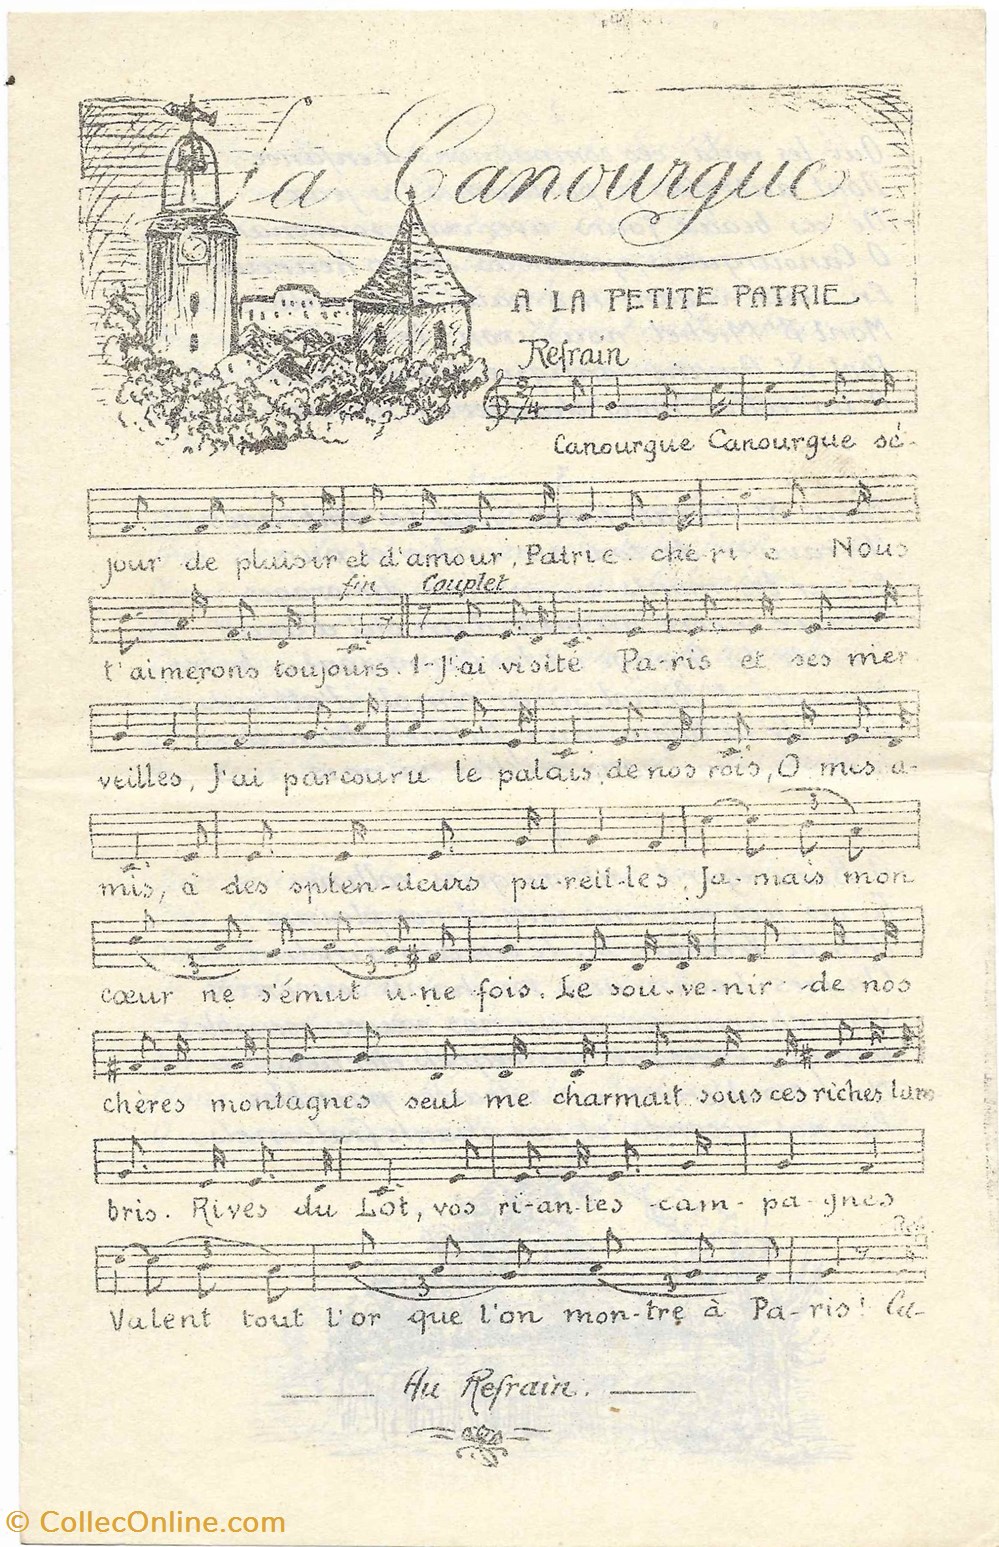 La Canourgue
A LA PETITE PATRIE
Refrain
2/4
Canourgue Canourgue sé-
jour de plaisir et d'amour, Patrie ché-ri-e Nous
fin Couplet
t'aimerons toujours. 1-J'ai visité Pa-ris et ses mer
veilles, J'ai parcouru le palais de nos rois, O mes a-
mis, à des splen-deurs pa-reil-les, Ja-mais mon
3
cœur ne s'émut u-ne-fois. Le sou-ve-nir de nos
3 3
chères montagnes seul me charmait sous ces riches lam
bris. Rives du Lot, vos ri-an-tes cam-pa-gnes
3 3 3
Valent tout l'or que l'on mon-tre à Pa-ris! Ca-
Au Refrain.
© CollecOnline.com